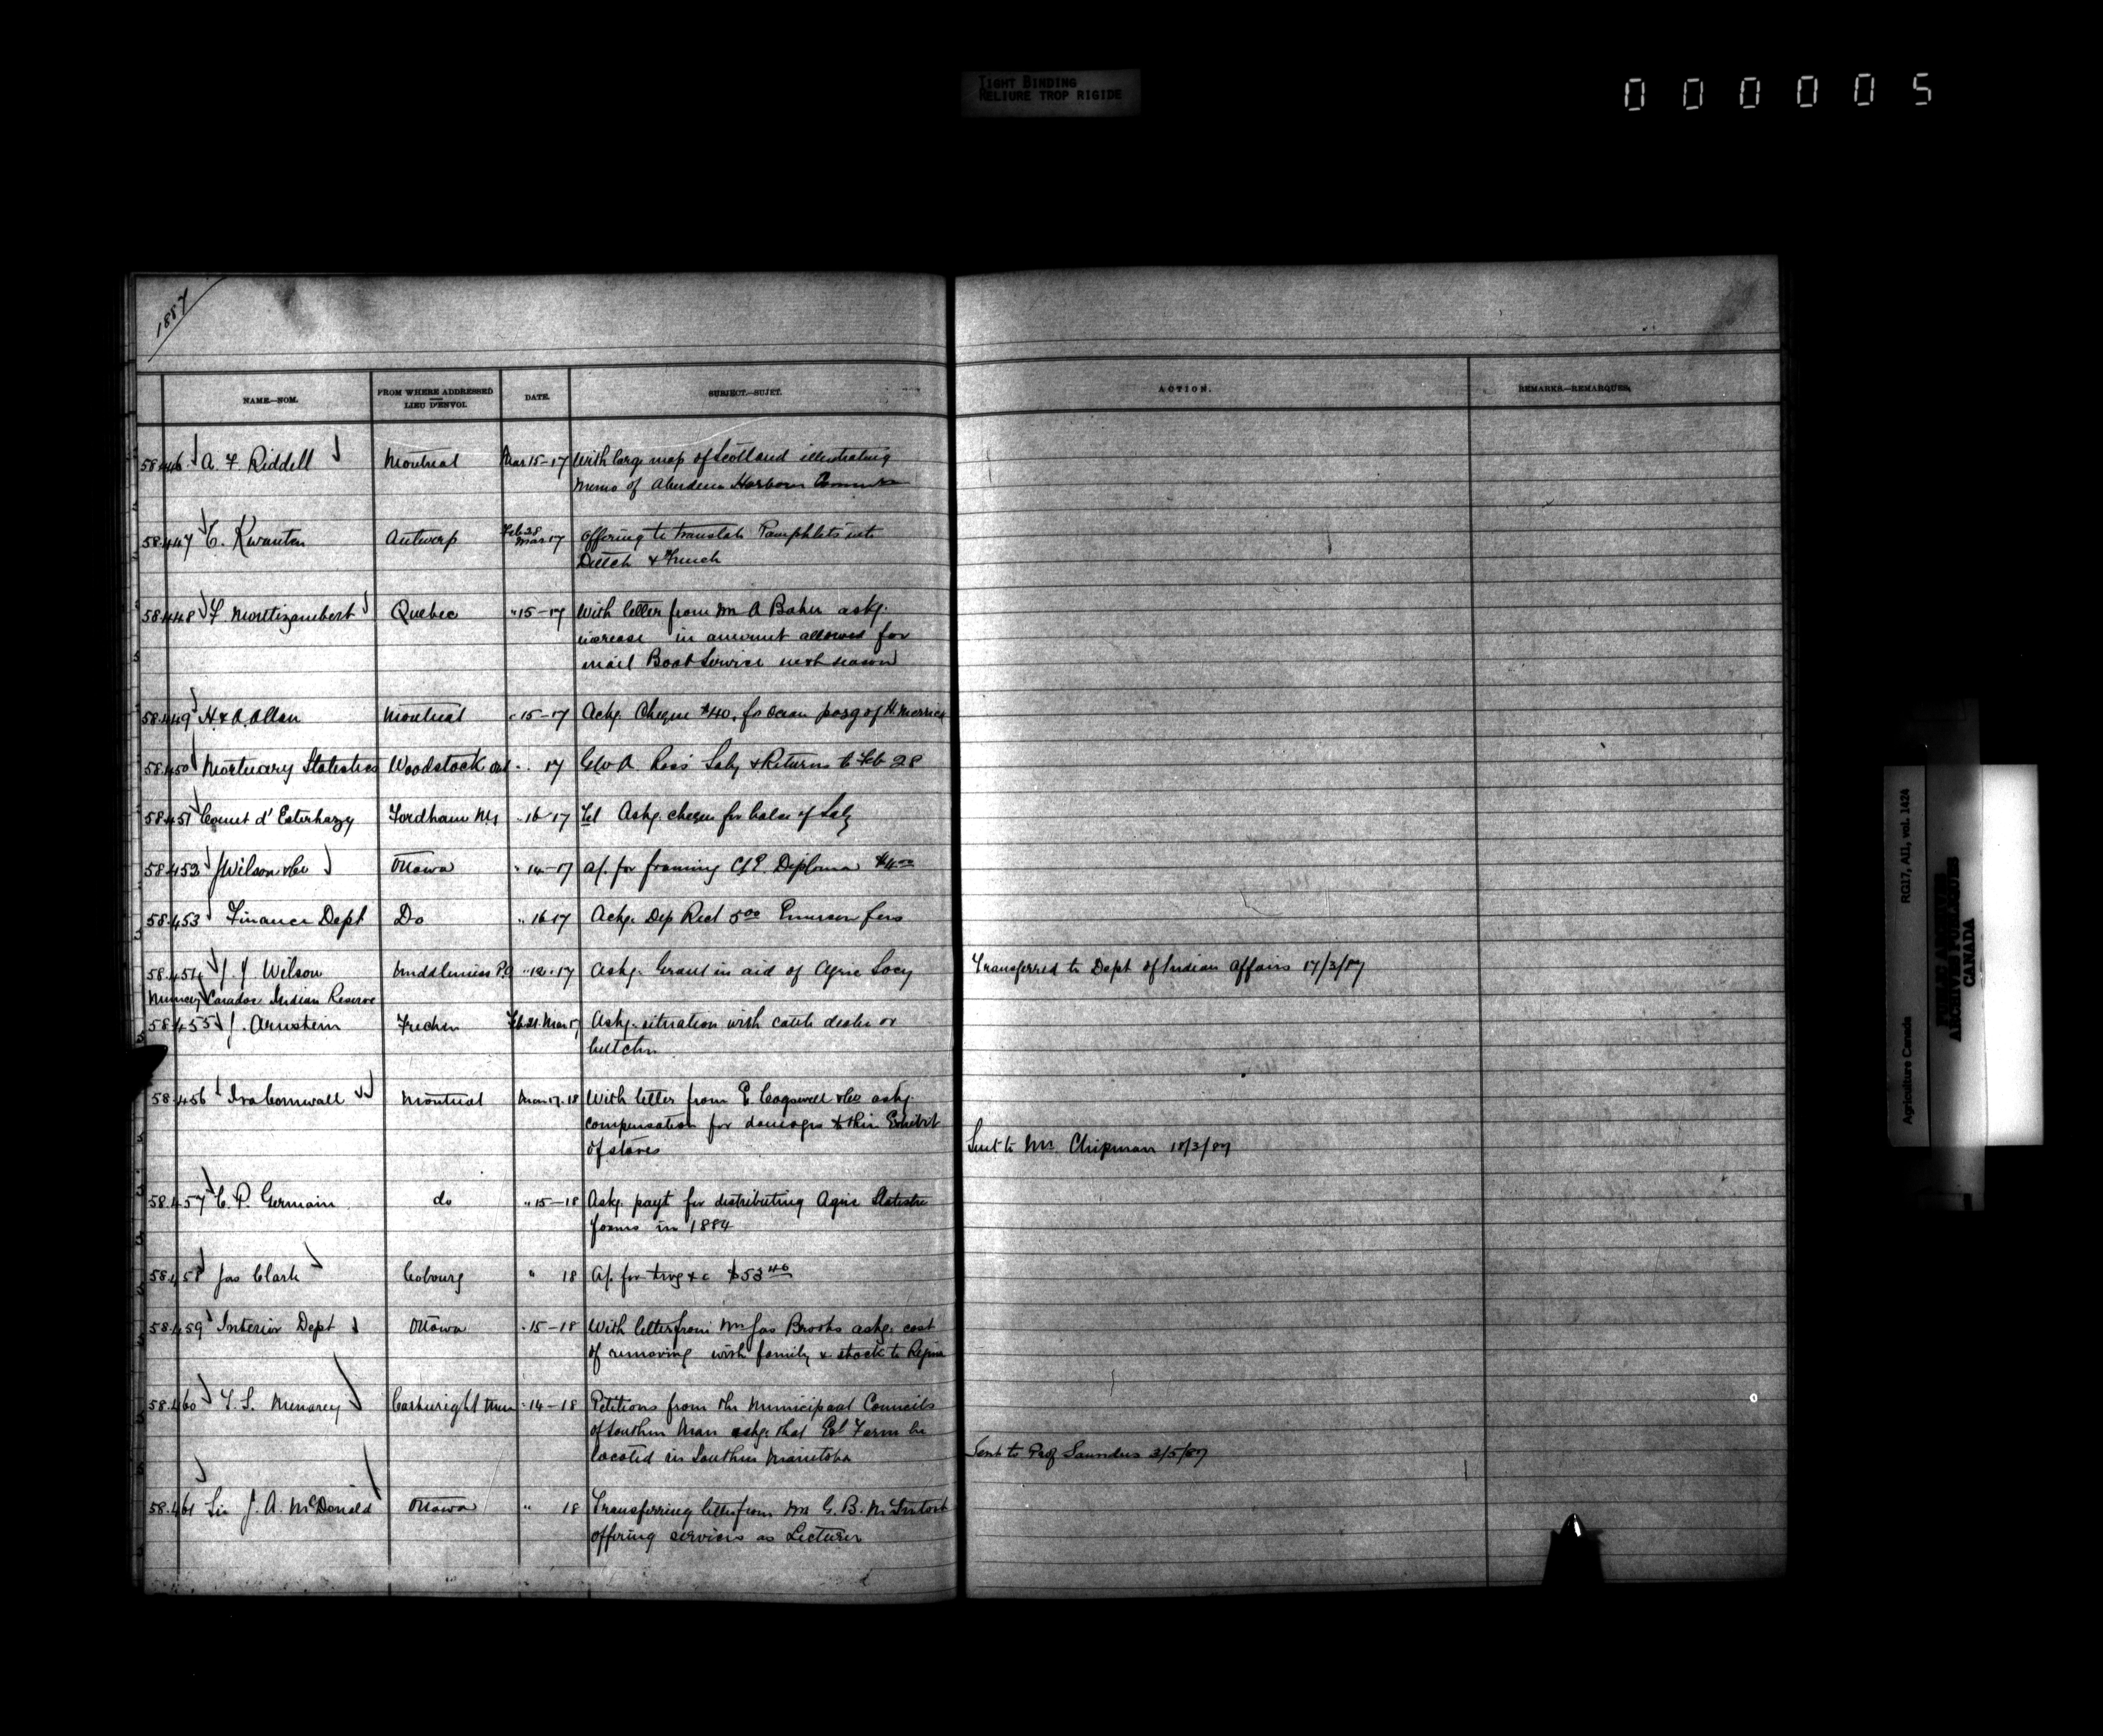 TIGHT BINDING
RELIURE TROP RIGIDE
000005
1887
NAME.—NOM.
FROM WHERE ADDRESSED
LIEU D'ENVOI.
DATE.
SUBJECT.—SUJET.
ACTION.
REMARKS.—REMARQUES.
58.446 A. F. Riddell Montreal Mar 15-17 With large map of Scotland illustrating
Memo of Aberdeen Harbour
58.447 E. Kwanten Antwerp Feb 28 Mar 17 Offering to translate Pamphlets into
Dutch & French
58.448 F. Montizambert Quebec " 15-17 With letter from Mr A Baker askg.
increase in amount allowed for
mail Boat Service next season
58.449 H & A. Allan Montreal " 15-17 Ackg. Cheque $40. for Ocean passg of H. Merrick
58.450 Mortuary Statistics Woodstock Ont " 17 Geo A. Ross Saly & Returns to Feb 28
58.451 Count d'Esterhazy Fordham NY " 16 17 Tel Askg. cheque for balce of Saly
58.452 J Wilson & Co Ottawa " 14-17 a/. for framing C/E. Diploma $4.00
58.453 Finance Dept Do " 16 17 Ackg. Dep Rect 5.00 Emerson fees
58.454 J. J. Wilson Middlemiss P.O " 12.17 Askg. Grant in aid of Agric Socy Transferred to Dept of Indian Affairs 17/3/87
Muncey Caradoc Indian Reserve
58.455 J. Arnstein Feb 21. Mar 17 Askg. situation with cattle dealer or
butcher
58.456 Ira Cornwall Montreal Mar 17.18 With letter from E. Cogswell & Co askg.
compensation for damages to their Exhibit
of stoves Sent to Mr Chipman 18/3/87
58.457 C. P. Germain do " 15-18 Askg. payt for distributing Agric Statistic
forms in 1884
58.458 Jas Clark Cobourg " 18 A/. for trvg &c $53.40
58.459 Interior Dept Ottawa " 15-18 With letter from Mr Jas Brooks askg. cost
of removing with family & stock to Regina
58.460 T. S. Menarey Cartwright Man " 14-18 Petitions from the Municipal Councils
of Southern Man askg. that Exl Farm be
located in Southern Manitoba Sent to Prof Saunders 3/5/87
58.461 Sir J. A. McDonald Ottawa " 18 Transferring letter from Mr G. B. McIntosh
offering services as Lecturer
Agriculture Canada
RG17, AII, vol. 1424
PUBLIC ARCHIVES
ARCHIVES PUBLIQUES
CANADA